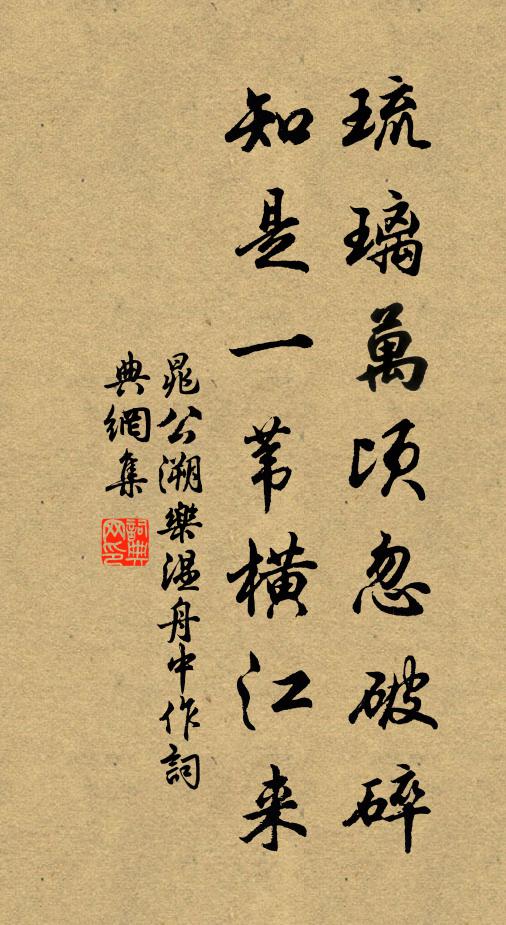 琉璃萬頃忽破碎
知是一苇橫江来
晁公溯樂温舟中作詞
典網集
詞典网印